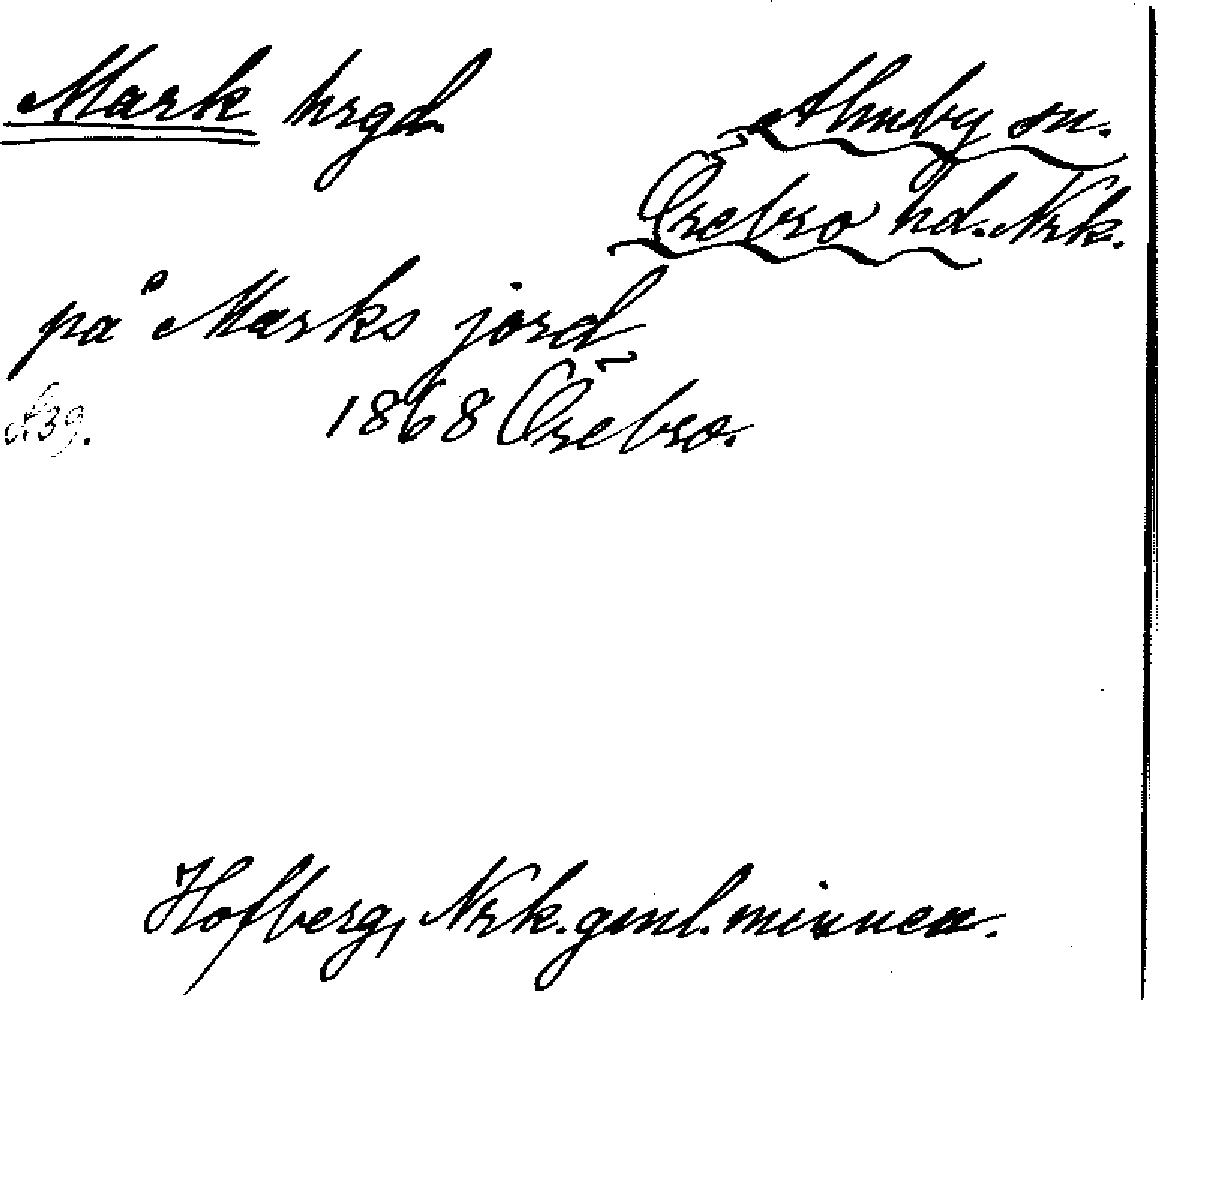 Mark hrgd.
Almby sn.
Örebro hd. Nrk.
på Marks jord
s. 39. 1868 Örebro.
Hofberg, Nrk. gml. minnen.